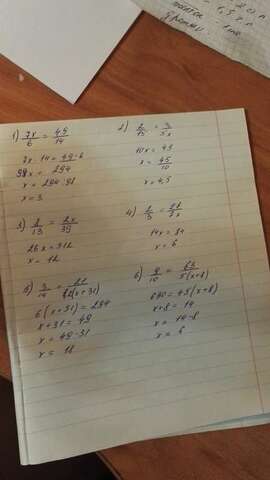 1) 7x/6 = 49/14
7x · 14 = 49 · 6
98x = 294
x = 294 : 98
x = 3
2) 2/15 = 3/5x
10x = 45
x = 45/10
x = 4,5
3) 8/13 = 2x/39
26x = 312
x = 12
4) 2/3 = 27/7x
14x = 84
x = 6
5) 3/14 = 21/2(x+31)
6(x+31) = 294
x+31 = 49
x = 49-31
x = 18
6) 9/10 = 63/5(x+8)
630 = 45(x+8)
x+8 = 14
x = 14-8
x = 6